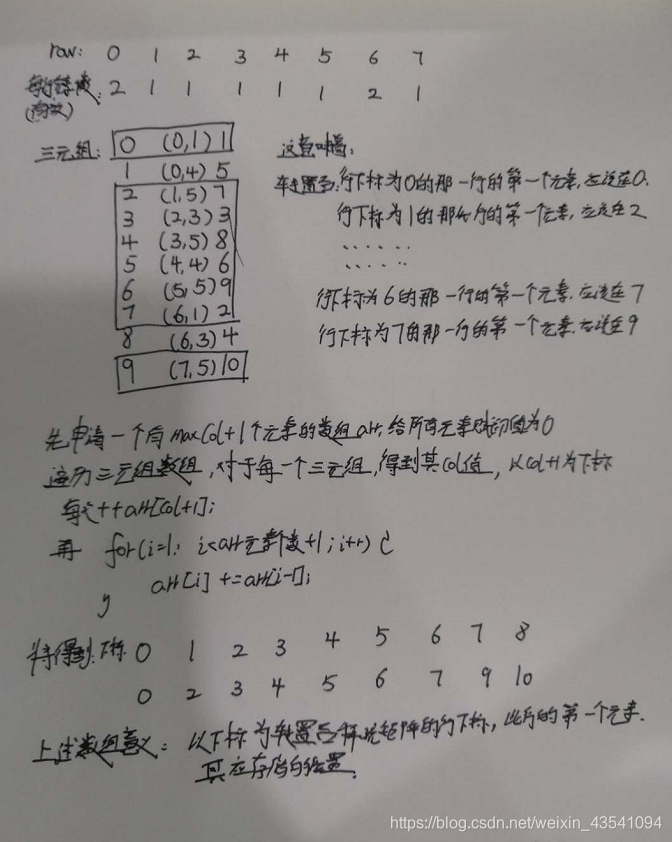 row: 0 1 2 3 4 5 6 7
每行 2 1 1 1 1 1 2 1
三元组: 0 (0,1) 1
1 (0,4) 5
2 (1,5) 7
3 (2,3) 3
4 (3,5) 8
5 (4,4) 6
6 (5,5) 9
7 (6,1) 2
8 (6,3) 4
9 (7,5) 10
这意味着:
转置后:行下标为0的那一行的第一个元素,应该在0.
行下标为1的那行的第一个元素,应该在2
......
......
行下标为6的那一行的第一个元素.应该在7
行下标为7的那一行的第一个元素.应该在9
先申请一个有maxCol+1个元素的数组arr,给所有元素赋初值为0
遍历三元组数组,对于每一个三元组,得到其Col值,以Col+1为下标
每次++arr[Col+1];
再 for(i=1; i<arr元素个数+1;i++) {
arr[i] += arr[i-1];
}
将得到:下标 0 1 2 3 4 5 6 7 8
0 2 3 4 5 6 7 9 10
上述数组意义: 以下标为转置后稀疏矩阵的行下标,此行的第一个元素.
其应存储的位置.
https://blog.csdn.net/weixin_43541094